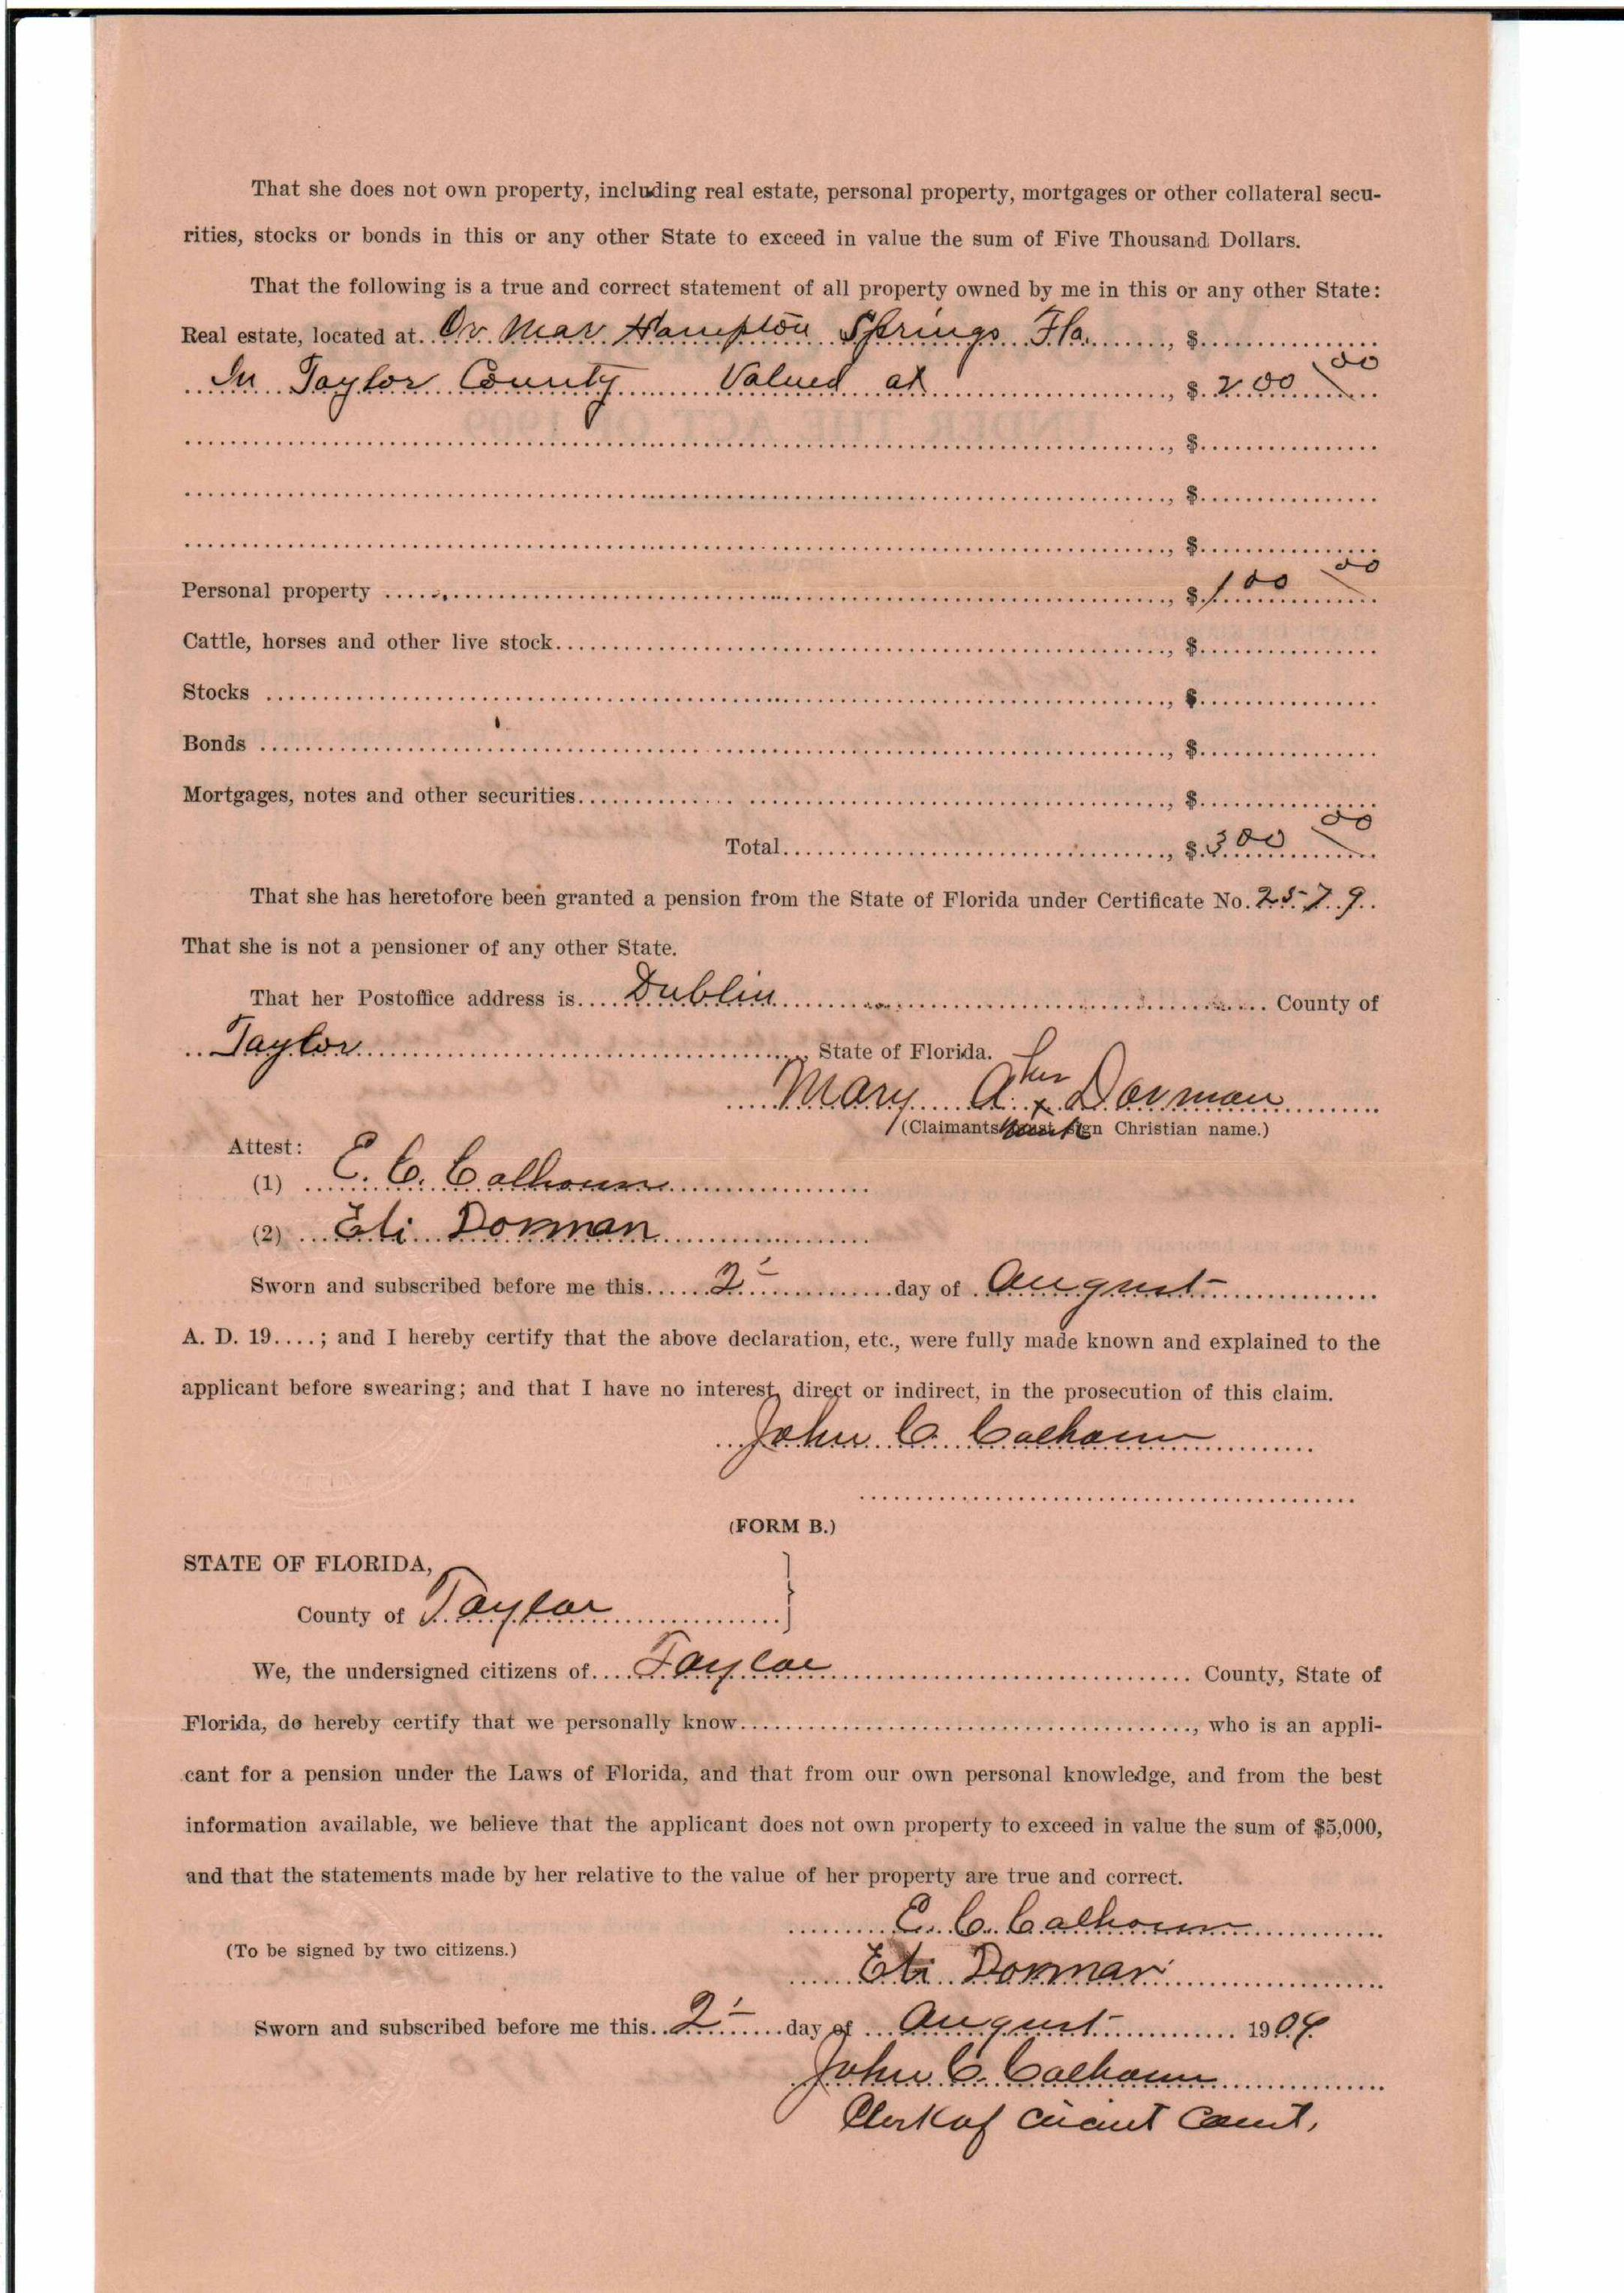 That she does not own property, including real estate, personal property, mortgages or other collateral secu-
rities, stocks or bonds in this or any other State to exceed in value the sum of Five Thousand Dollars.
That the following is a true and correct statement of all property owned by me in this or any other State:
Real estate, located at. Or Near Hampton Springs Fla., $
In Taylor County Valued at, $ 200 00
, $
, $
, $
Personal property, $ 100 00
Cattle, horses and other live stock, $
Stocks, $
Bonds, $
Mortgages, notes and other securities, $
Total, $ 300 00
That she has heretofore been granted a pension from the State of Florida under Certificate No. 2579.
That she is not a pensioner of any other State.
That her Postoffice address is Dublin County of
Taylor, State of Florida.
her
Mary A. x Dorman
(Claimants must sign Christian name.)
mark
Attest:
(1) E. C. Calhoun
(2) Eli Dorman
Sworn and subscribed before me this 2 day of August
A. D. 19....; and I hereby certify that the above declaration, etc., were fully made known and explained to the
applicant before swearing; and that I have no interest, direct or indirect, in the prosecution of this claim.
John C. Calhoun
(FORM B.)
STATE OF FLORIDA,
County of Taylor
We, the undersigned citizens of Taylor County, State of
Florida, do hereby certify that we personally know, who is an appli-
cant for a pension under the Laws of Florida, and that from our own personal knowledge, and from the best
information available, we believe that the applicant does not own property to exceed in value the sum of $5,000,
and that the statements made by her relative to the value of her property are true and correct.
E. C. Calhoun
(To be signed by two citizens.)
Eli Dorman
Sworn and subscribed before me this 2 day of August 1909
John C. Calhoun
Clerk of Circuit Court.